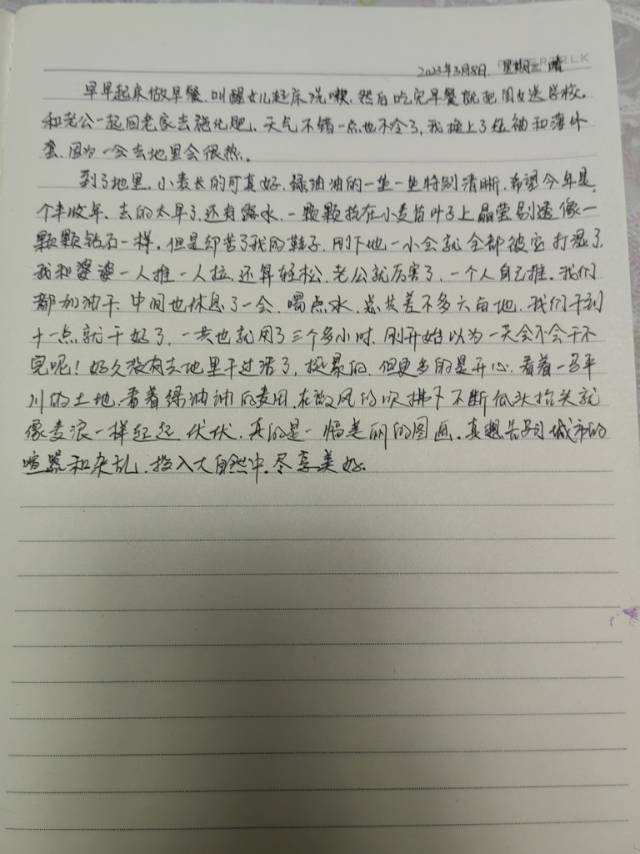 2023年3月8日 星期三 晴
早早起床做早餐,叫醒女儿起床洗漱,然后吃完早餐就把闺女送学校。
和老公一起回老家去施化肥。天气不错一点也不冷了,我换上了短袖和薄外
套,因为一会去地里会很热。
到了地里,小麦长的可真好,绿油油的一垄一垄特别清晰,希望今年是
个丰收年。去的太早了,还有露水,一颗颗挂在小麦苗叶子上晶莹剔透像一
颗颗钻石一样。但是却苦了我的鞋子,刚下地一小会就全部被它打湿了。
我和婆婆一人推一人拉,还算轻松,老公就厉害了,一个人自己推。我们
都加油干,中间也休息了一会,喝点水,总共差不多六亩地,我们干到
十一点就干好了,一共也就用了三个多小时,刚开始以为一天会不会干不
完呢!好久没有去地里干过活了,挺累的,但更多的是开心,看着一马平
川的土地,看着绿油油的麦田,在微风的吹拂下不断低头抬头就
像麦浪一样起起伏伏,真的是一幅美丽的图画,真想告别城市的
喧嚣和杂乱,投入大自然中,尽享美好。